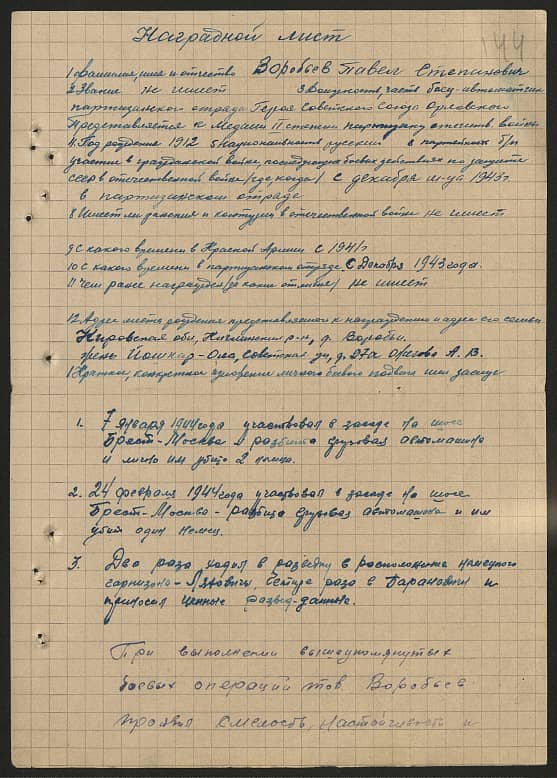 144
Наградной лист
1 Фамилия, имя и отчество Воробьев Павел Степанович
2 Звание не имеет 3 Должность, часть боец-автоматчик
партизанского отряда Героя Советского Союза Орловского
Представляется к Медали II степени партизану отечеств. войны
4. Год рождения 1912 5 Национальность русский 6 партийность б/п
участие в гражданской войне, последующих боевых действиях по защите
СССР в отечественной войне /где, когда/ с декабря м-ца 1943г
в партизанском отряде
8 Имеет ли ранения и контузии в отечественной войне не имеет
9 С какого времени в Красной Армии с 1941г
10 С какого времени в партизанском отряде с Декабря 1943 года.
11 Чем ранее награжден /за какие отличия/ не имеет
12 Адрес места рождения представляемого к награждению и адрес его семьи
Кировская обл, р-н, д. Воробьи.
жены Йошкар-Ола, Советская ул, д. 27а А. В.
Краткое, конкретное изложение личного боевого подвига или заслуг
1. 7 января 1944 года участвовал в засаде на шоссе
Брест-Москва и разбита грузовая автомашина
и лично им убито 2 немца.
2. 24 февраля 1944 года участвовал в засаде на шоссе
Брест-Москва - разбита грузовая автомашина и им
убит один немец.
3. Два раза ходил в разведку в расположение немецкого
гарнизона - Ляховичи, четыре раза в Барановичи и
приносил ценные развед-данные.
При выполнении вышеупомянутых
боевых операций тов. Воробьев
проявил смелость, настойчивость и